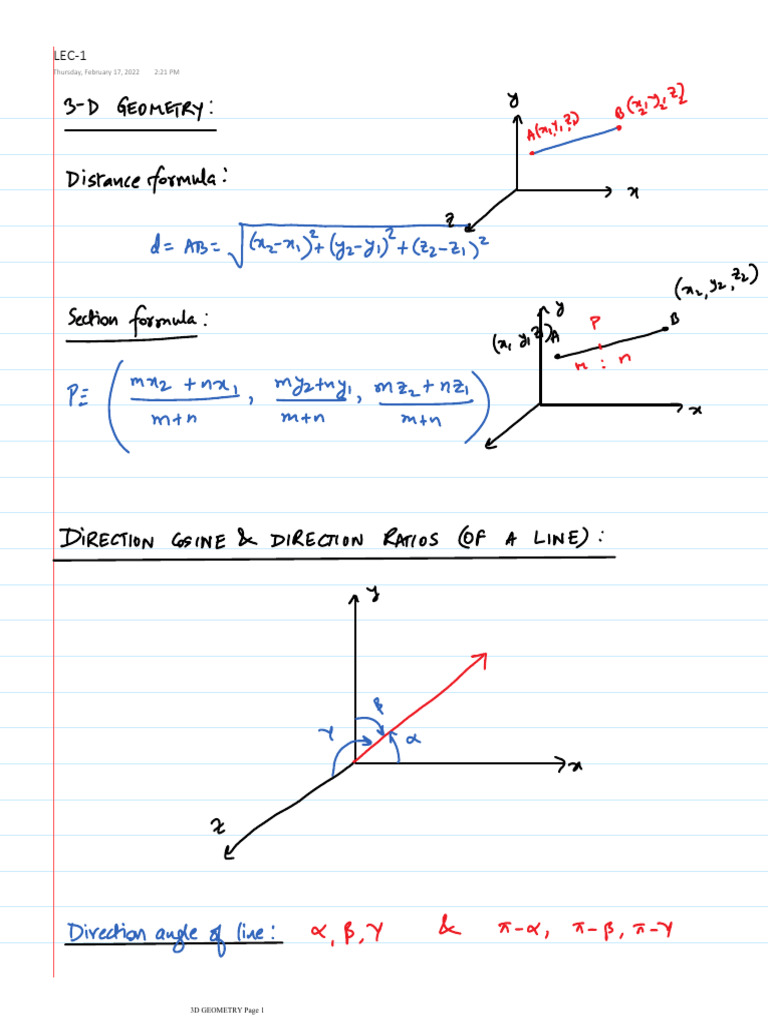 LEC-1
Thursday, February 17, 2022 2:21 PM
3-D GEOMETRY:
y
A(x₁,y₁,z₁)
B(x₂,y₂,z₂)
x
z
Distance formula:
d = AB = √((x₂-x₁)²+(y₂-y₁)²+(z₂-z₁)²)
Section formula:
y
(x₁ y₁ z₁)A
P
B
(x₂, y₂, z₂)
m : n
x
P≡ ( (mx₂ + nx₁)/(m+n) , (my₂+ny₁)/(m+n) , (mz₂ + nz₁)/(m+n) )
DIRECTION COSINE & DIRECTION RATIOS (OF A LINE):
y
β
γ
α
x
z
Direction angle of line: α, β, γ & π-α, π-β, π-γ
3D GEOMETRY Page 1